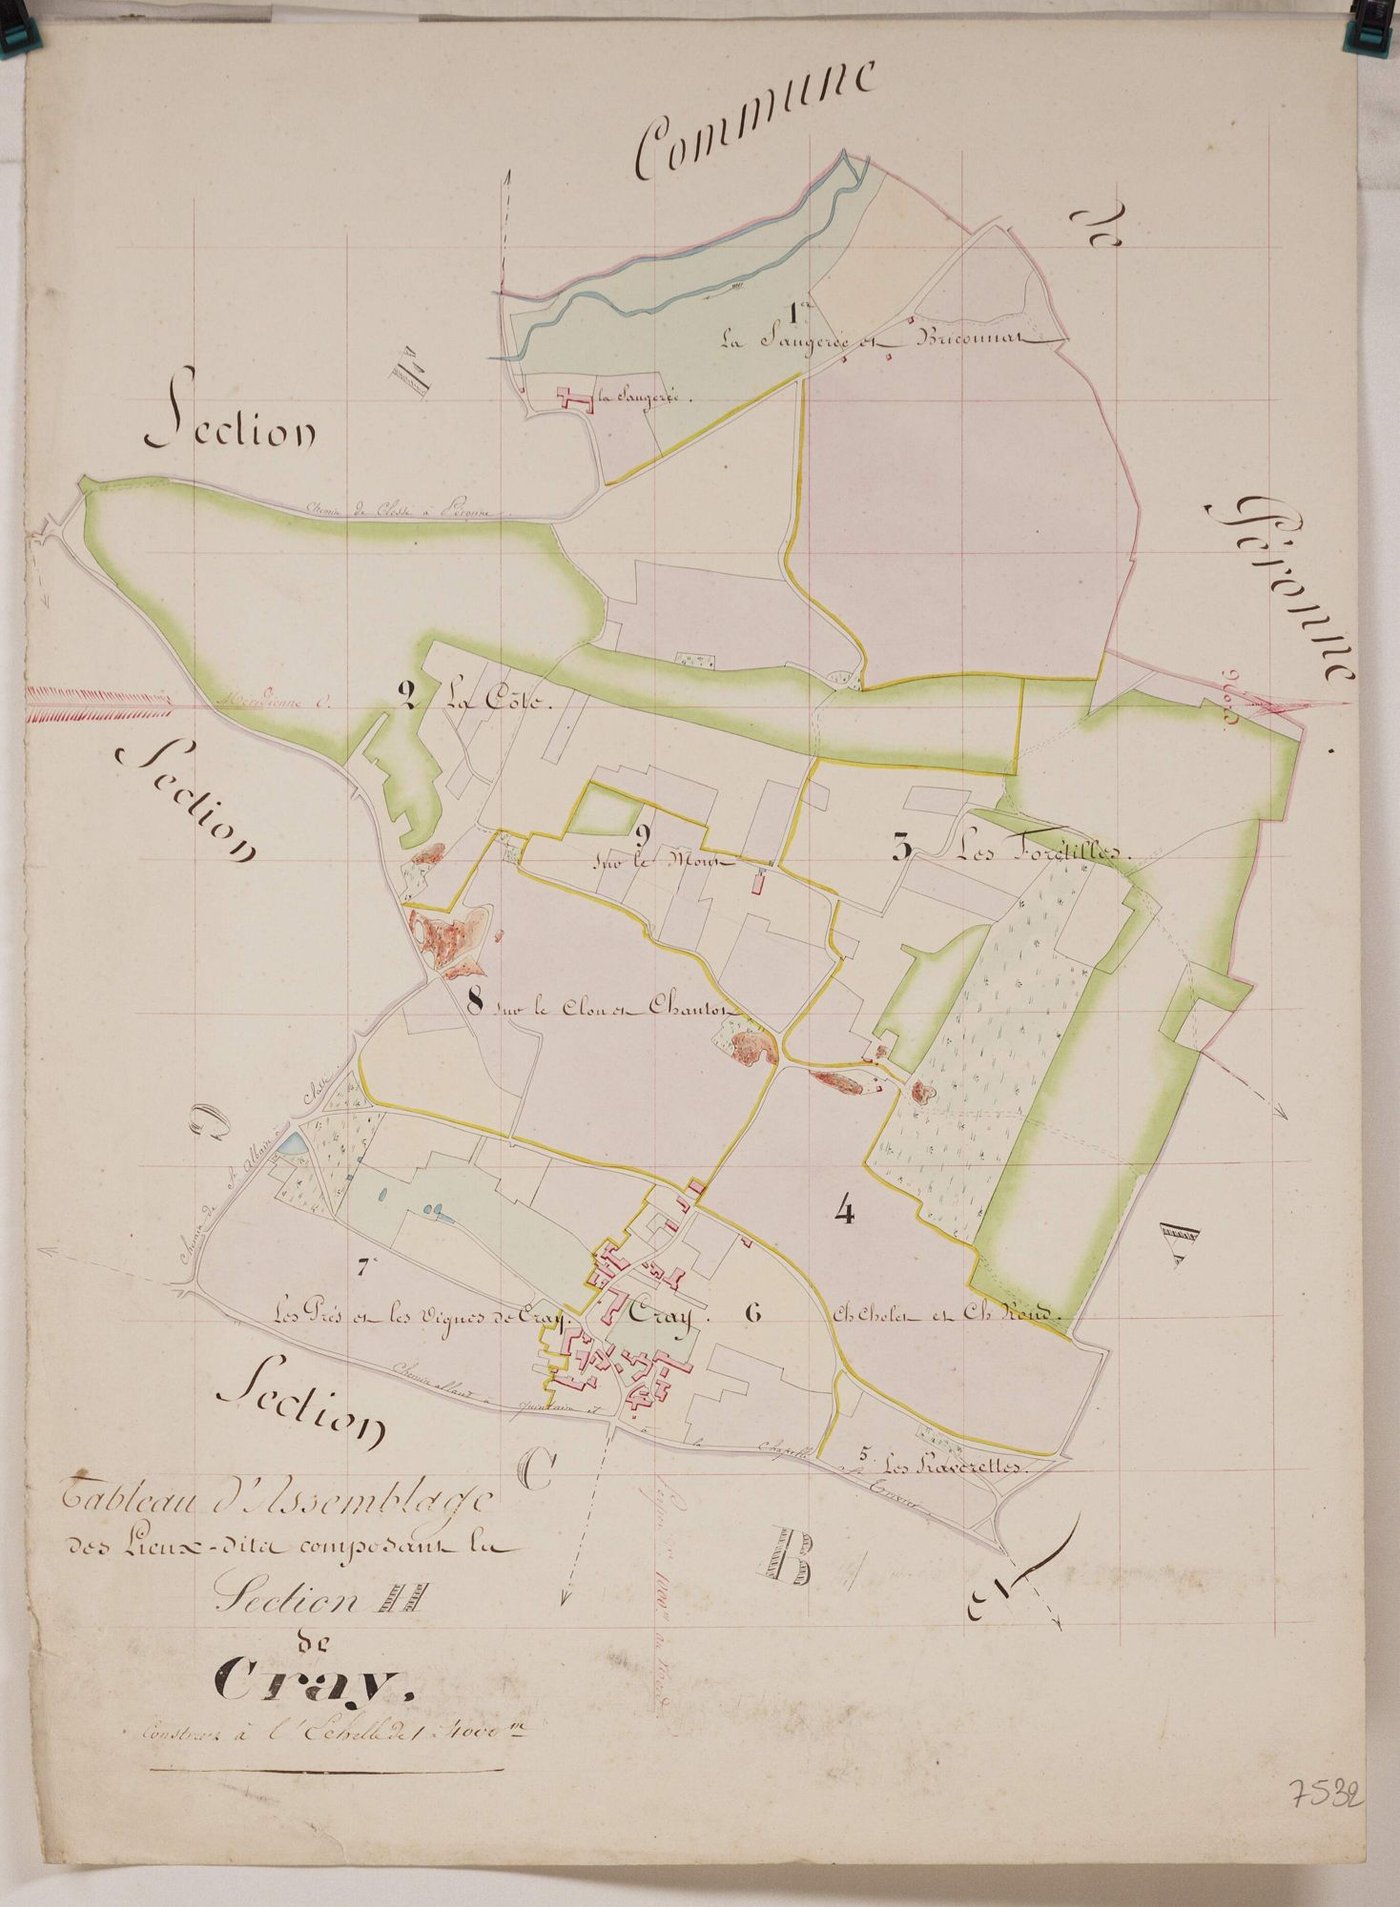 Commune
de
Péronne.
Section
E
1re
La Saugerée et Briconnat
la Saugerée.
Chemin de Clessé à Péronne
Méridienne O.
Nord
2 La Côte.
Section
9
Sur le Mont
3 Les Forétilles.
8 Sur le Clou et Chantot
D
Chemin de St Albain à Clessé
4
Ch Cholet et Ch Rond.
A
7
Les Prés et les Vignes de Cray.
Cray.
6
Section
Chemin allant à Quintaine et à la Chapelle
C
5. Les Raverettes.
B
et
Tableau d'Assemblage
des Lieux-dits composant la
Section H
de
Cray.
Construit à l'Echelle de 1 à 4000m
1000m au Nord
7532